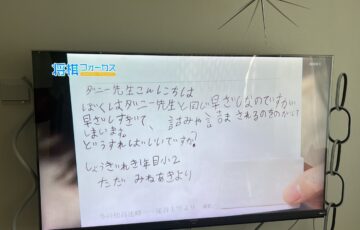 将棋フォーカス
ダニー先生こんにちは
ぼくはダニー先生と同じ早ざしなのですが
早ざしすぎて、詰みや 詰まされるのをのがして
しまいます。
どうすればいいですか?
しょうぎれき1年目小2
ただ みねあきより